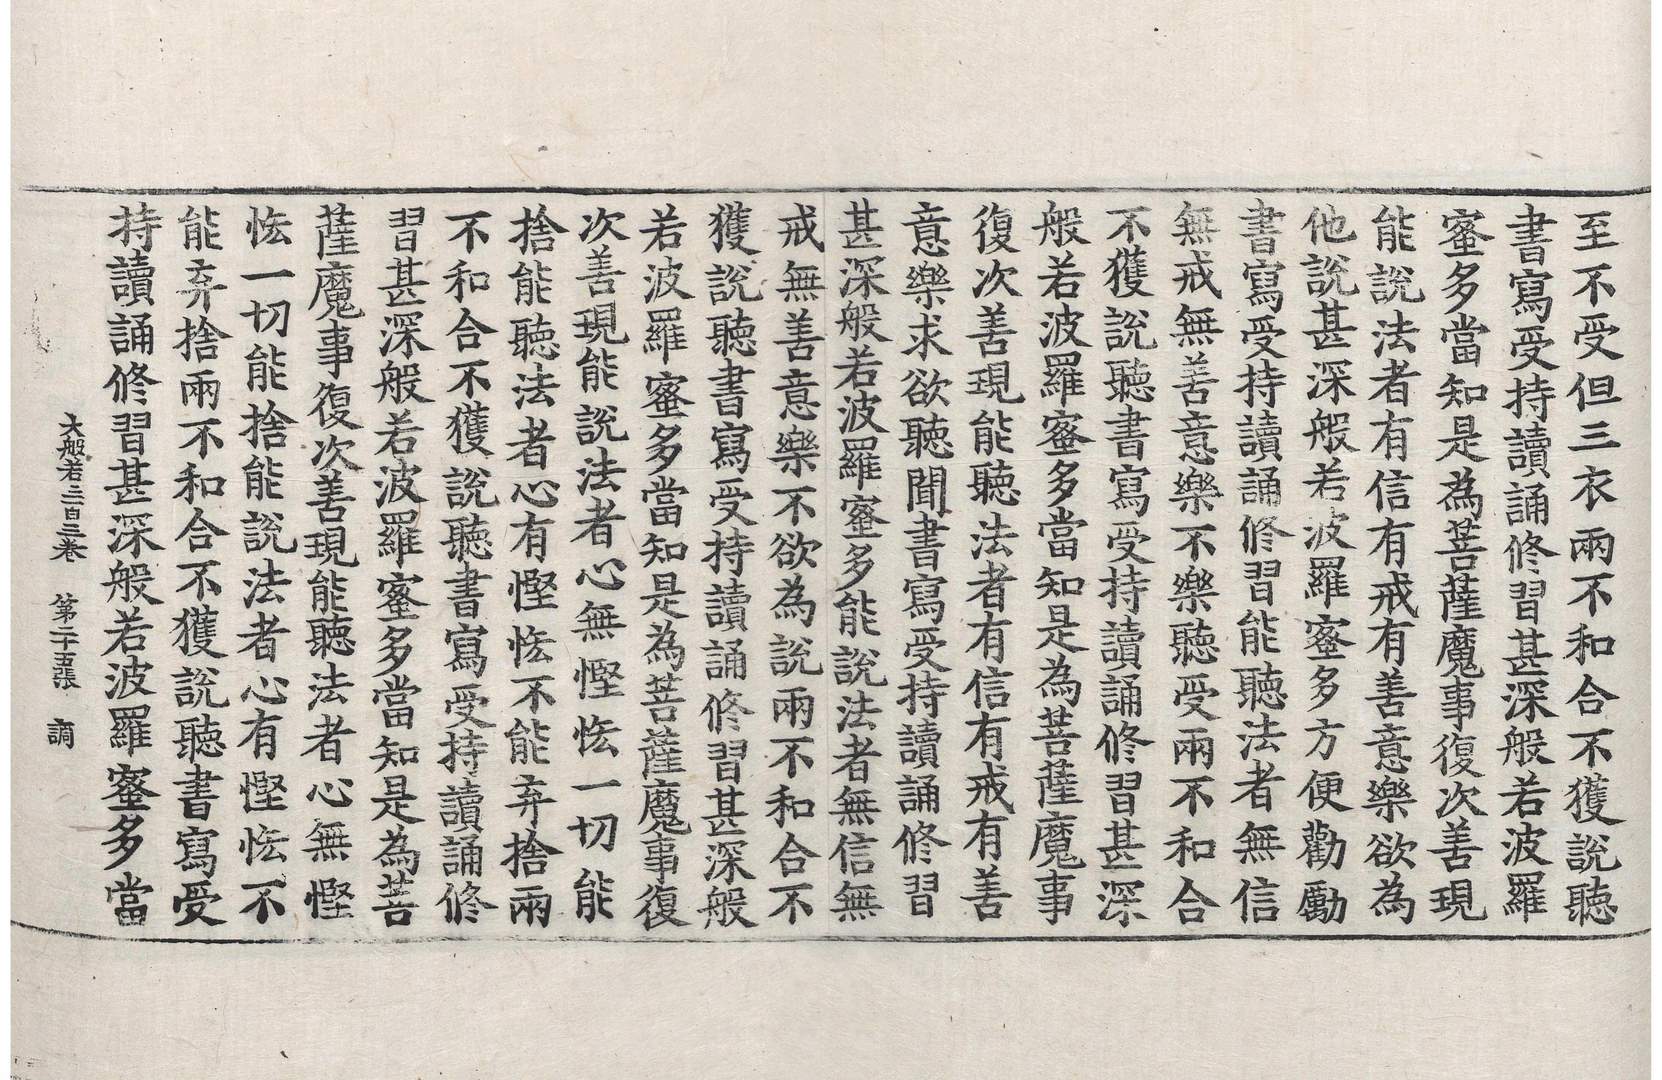 至不受但三衣兩不和合不獲說聽
書寫受持讀誦修習甚深般若波羅
蜜多當知是為菩薩魔事復次善現
能說法者有信有戒有善意樂欲為
他說甚深般若波羅蜜多方便勸勵
書寫受持讀誦修習能聽法者無信
無戒無善意樂不樂聽受兩不和合
不獲說聽書寫受持讀誦修習甚深
般若波羅蜜多當知是為菩薩魔事
復次善現能聽法者有信有戒有善
意樂求欲聽聞書寫受持讀誦修習
甚深般若波羅蜜多能說法者無信無
戒無善意樂不欲為說兩不和合不
獲說聽書寫受持讀誦修習甚深般
若波羅蜜多當知是為菩薩魔事復
次善現能說法者心無慳悋一切能
捨能聽法者心有慳悋不能弃捨兩
不和合不獲說聽書寫受持讀誦修
習甚深般若波羅蜜多當知是為菩
薩魔事復次善現能聽法者心無慳
悋一切能捨能說法者心有慳悋不
能弃捨兩不和合不獲說聽書寫受
持讀誦修習甚深般若波羅蜜多當
大般若三百三卷 第二十五張 調